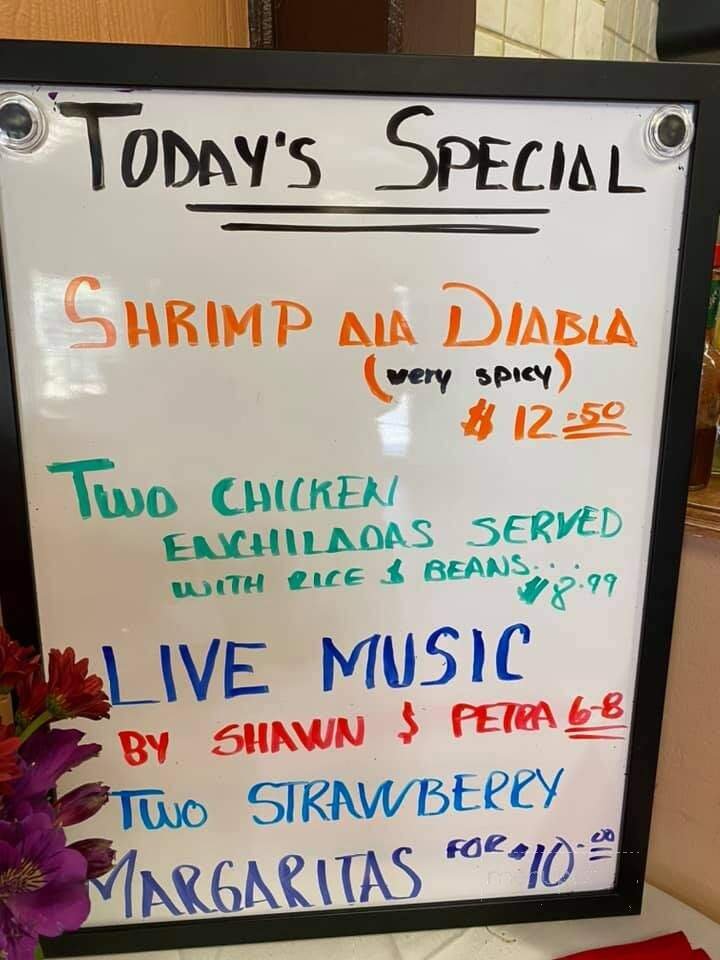 TODAY'S SPECIAL
SHRIMP ALA DIABLA
(very spicy)
$12.50
TWO CHICKEN
ENCHILADAS SERVED
WITH RICE & BEANS...
$8.99
LIVE MUSIC
BY SHAWN & PETRA 6-8
TWO STRAWBERRY
MARGARITAS FOR $10.00